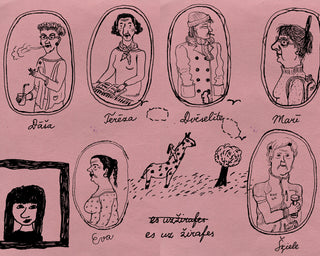 Dāša
Terēza
Dvēselīte
Marī
Eva
es uz žirafes
es uz žirafes